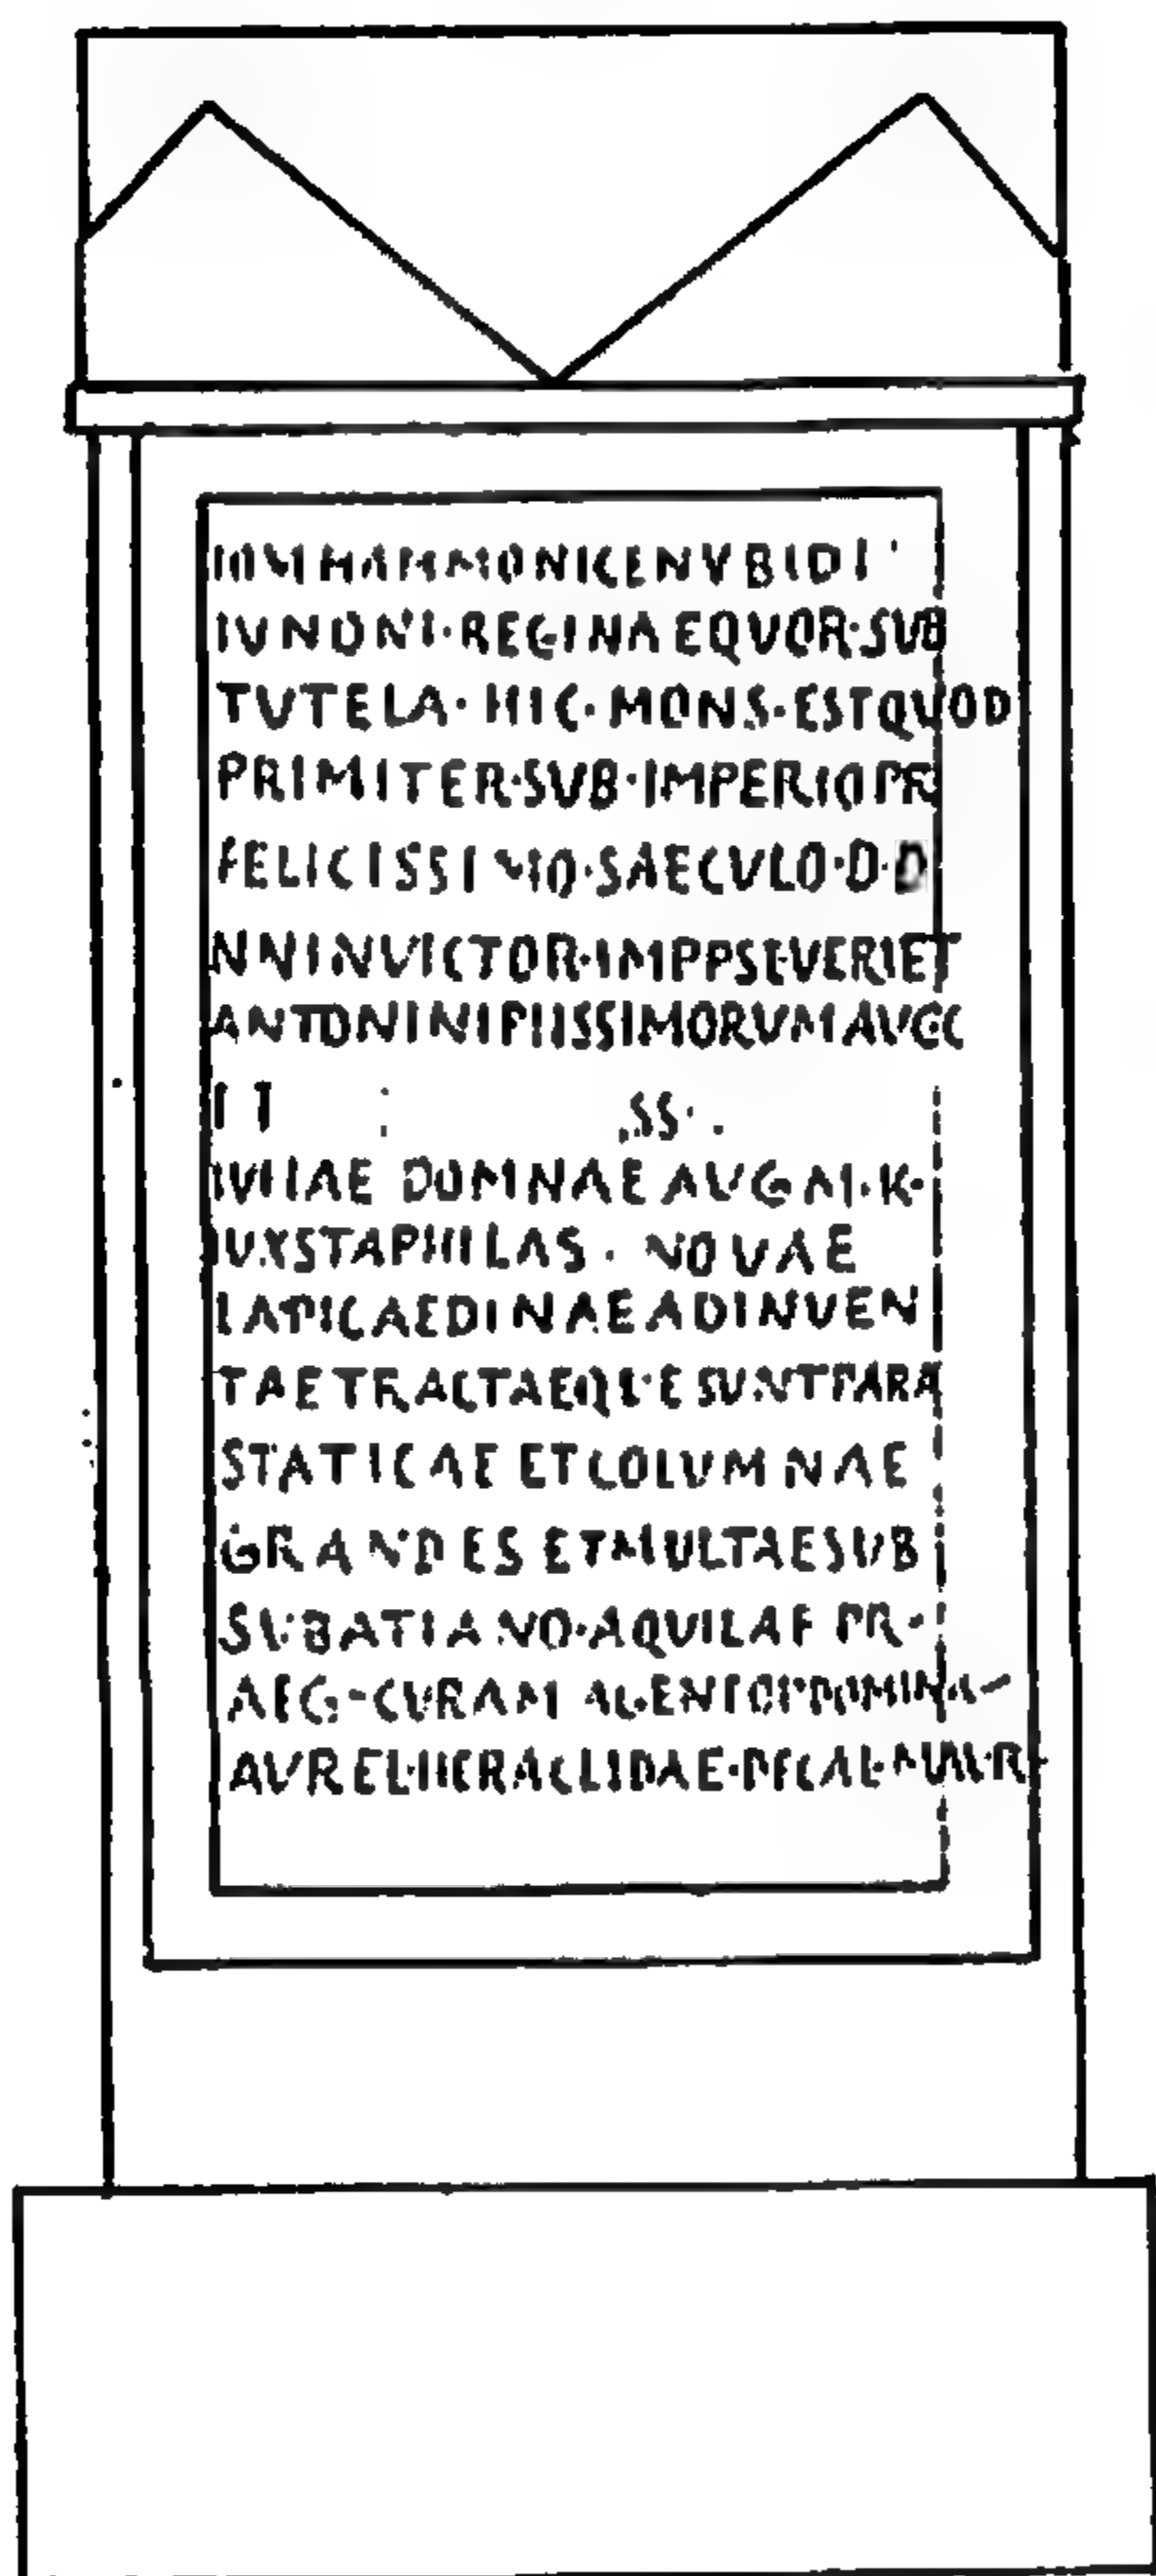 IOVI HAMMONI CENVBIDI
IVNONI·REGINAE QVOR·SVB
TVTELA·HIC·MONS·EST QVOD
PRIMITER·SVB·IMPERIO PR
FELICISSIMO·SAECVLO·D·D
NN INVICTOR·IMPP SEVERI ET
ANTONINI PIISSIMORVM AVGG
ET SS
IVLIAE DOMNAE AVG M·K·
IVXSTA PHILAS·NOVAE
LAPICAEDINAE ADINVEN
TAE TRACTAEQVE SVNT PARA
STATICAE ET COLVMNAE
GRANDES ET MVLTAE SVB
SVBATIANO·AQVILA PR·
AEG-CVRAM AGENT OP DOMINIC
AVREL·HERACLIDAE·DEC AL·MAVR